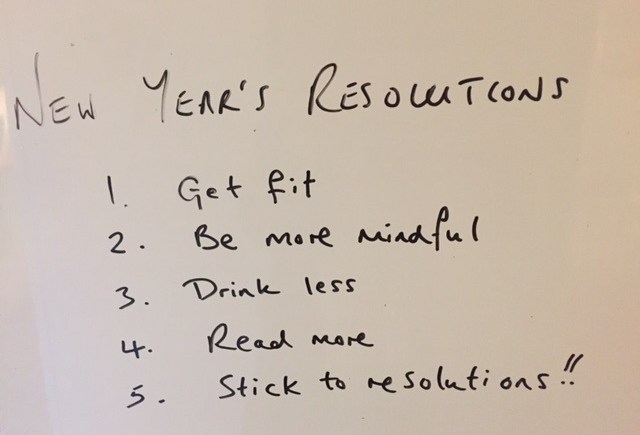 NEW YEAR'S RESOLUTIONS
1. Get fit
2. Be more mindful
3. Drink less
4. Read more
5. Stick to resolutions!!